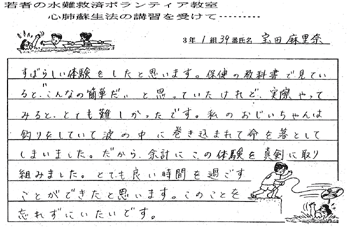 若者の水難救済ボランティア教室
心肺蘇生法の講習を受けて………
3年1組39番氏名 宝田麻里奈
すばらしい体験をしたと思います。保健の教科書で見てい
ると、こんなの簡単だ。と思っていたけれど、実際やって
みると、とても難しかったです。私のおじいちゃんは
釣りをしていて波の中に巻き込まれて命を落として
しまいました。だから、余計にこの体験を真剣に取り
組みました。とても良い時間を過ごす
ことができたと思います。このことを
忘れずにいたいです。